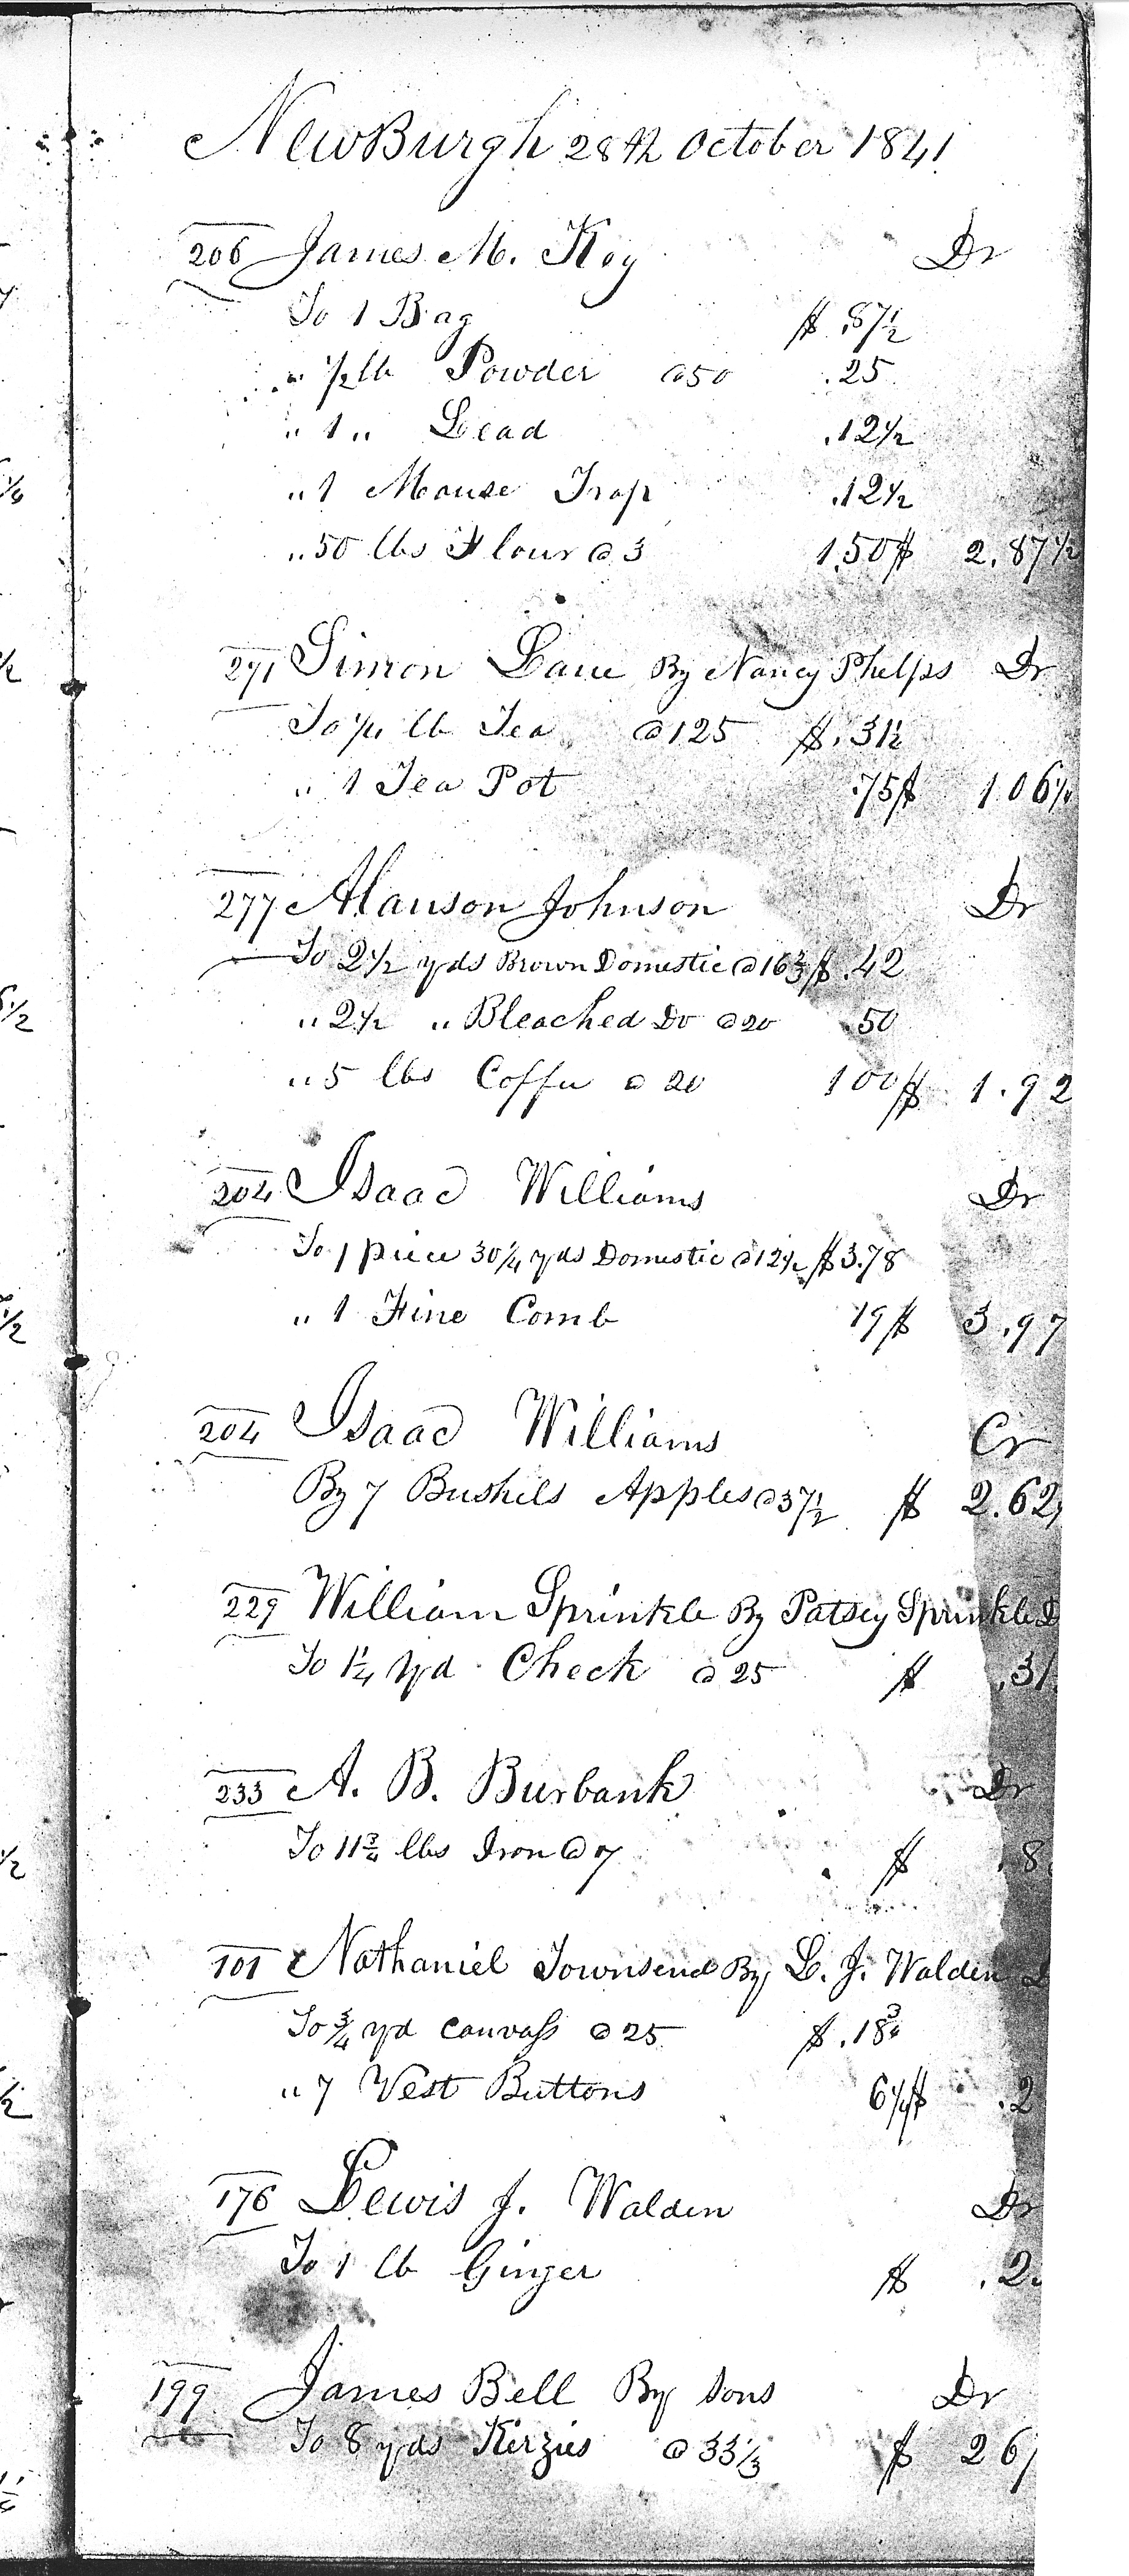 NewBurgh 28th October 1841
206 James M. Key Dr
To 1 Bag $ .87½
" ½ lb Powder @50 .25
" 1 " Lead .12½
" 1 Mouse Trap .12½
" 50 lbs Flour @ 3 1.50 $ 2.87½
271 Simon Lane By Nancy Phelps Dr
To ¼ lb Tea @ 125 $ .31½
" 1 Tea Pot .75 $ 1.06½
277 Alanson Johnson Dr
To 2½ yds Brown Domestic @ 16⅔ $ .42
" 2½ " Bleached Do @ 20 .50
" 5 lbs Coffee @ 20 1 00 $ 1.92
204 Isaac Williams Dr
To 1 piece 30¼ yds Domestic @ 12½ $ 3.78
" 1 Fine Comb 19 $ 3.97
204 Isaac Williams Cr
By 7 Bushels Apples @ 37½ $ 2.62
229 William Sprinkle By Patsey Sprinkle D
To 1¼ yd Check @ 25 $ .31
233 A. B. Burbank Dr
To 11¾ lbs Iron @ 7 $ .8
101 Nathaniel Townsend By L. J. Walden D
To ¾ yd Canvass @ 25 $ .18¾
" 7 Vest Buttons 6¼ $ .2
176 Lewis J. Walden Dr
To 1 lb Ginger $ .2
199 James Bell By Sons Dr
To 8 yds Kerzies @ 33⅓ $ 2 6